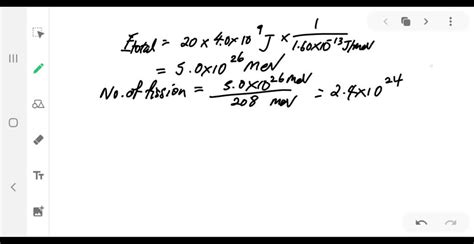 Etotal = 20 x 4.0x10^9 J x 1/1.60x10^-13 J/mev
= 5.0x10^26 mev
No. of fission = 5.0x10^26 mev/208 mev = 2.4x10^24
Tt